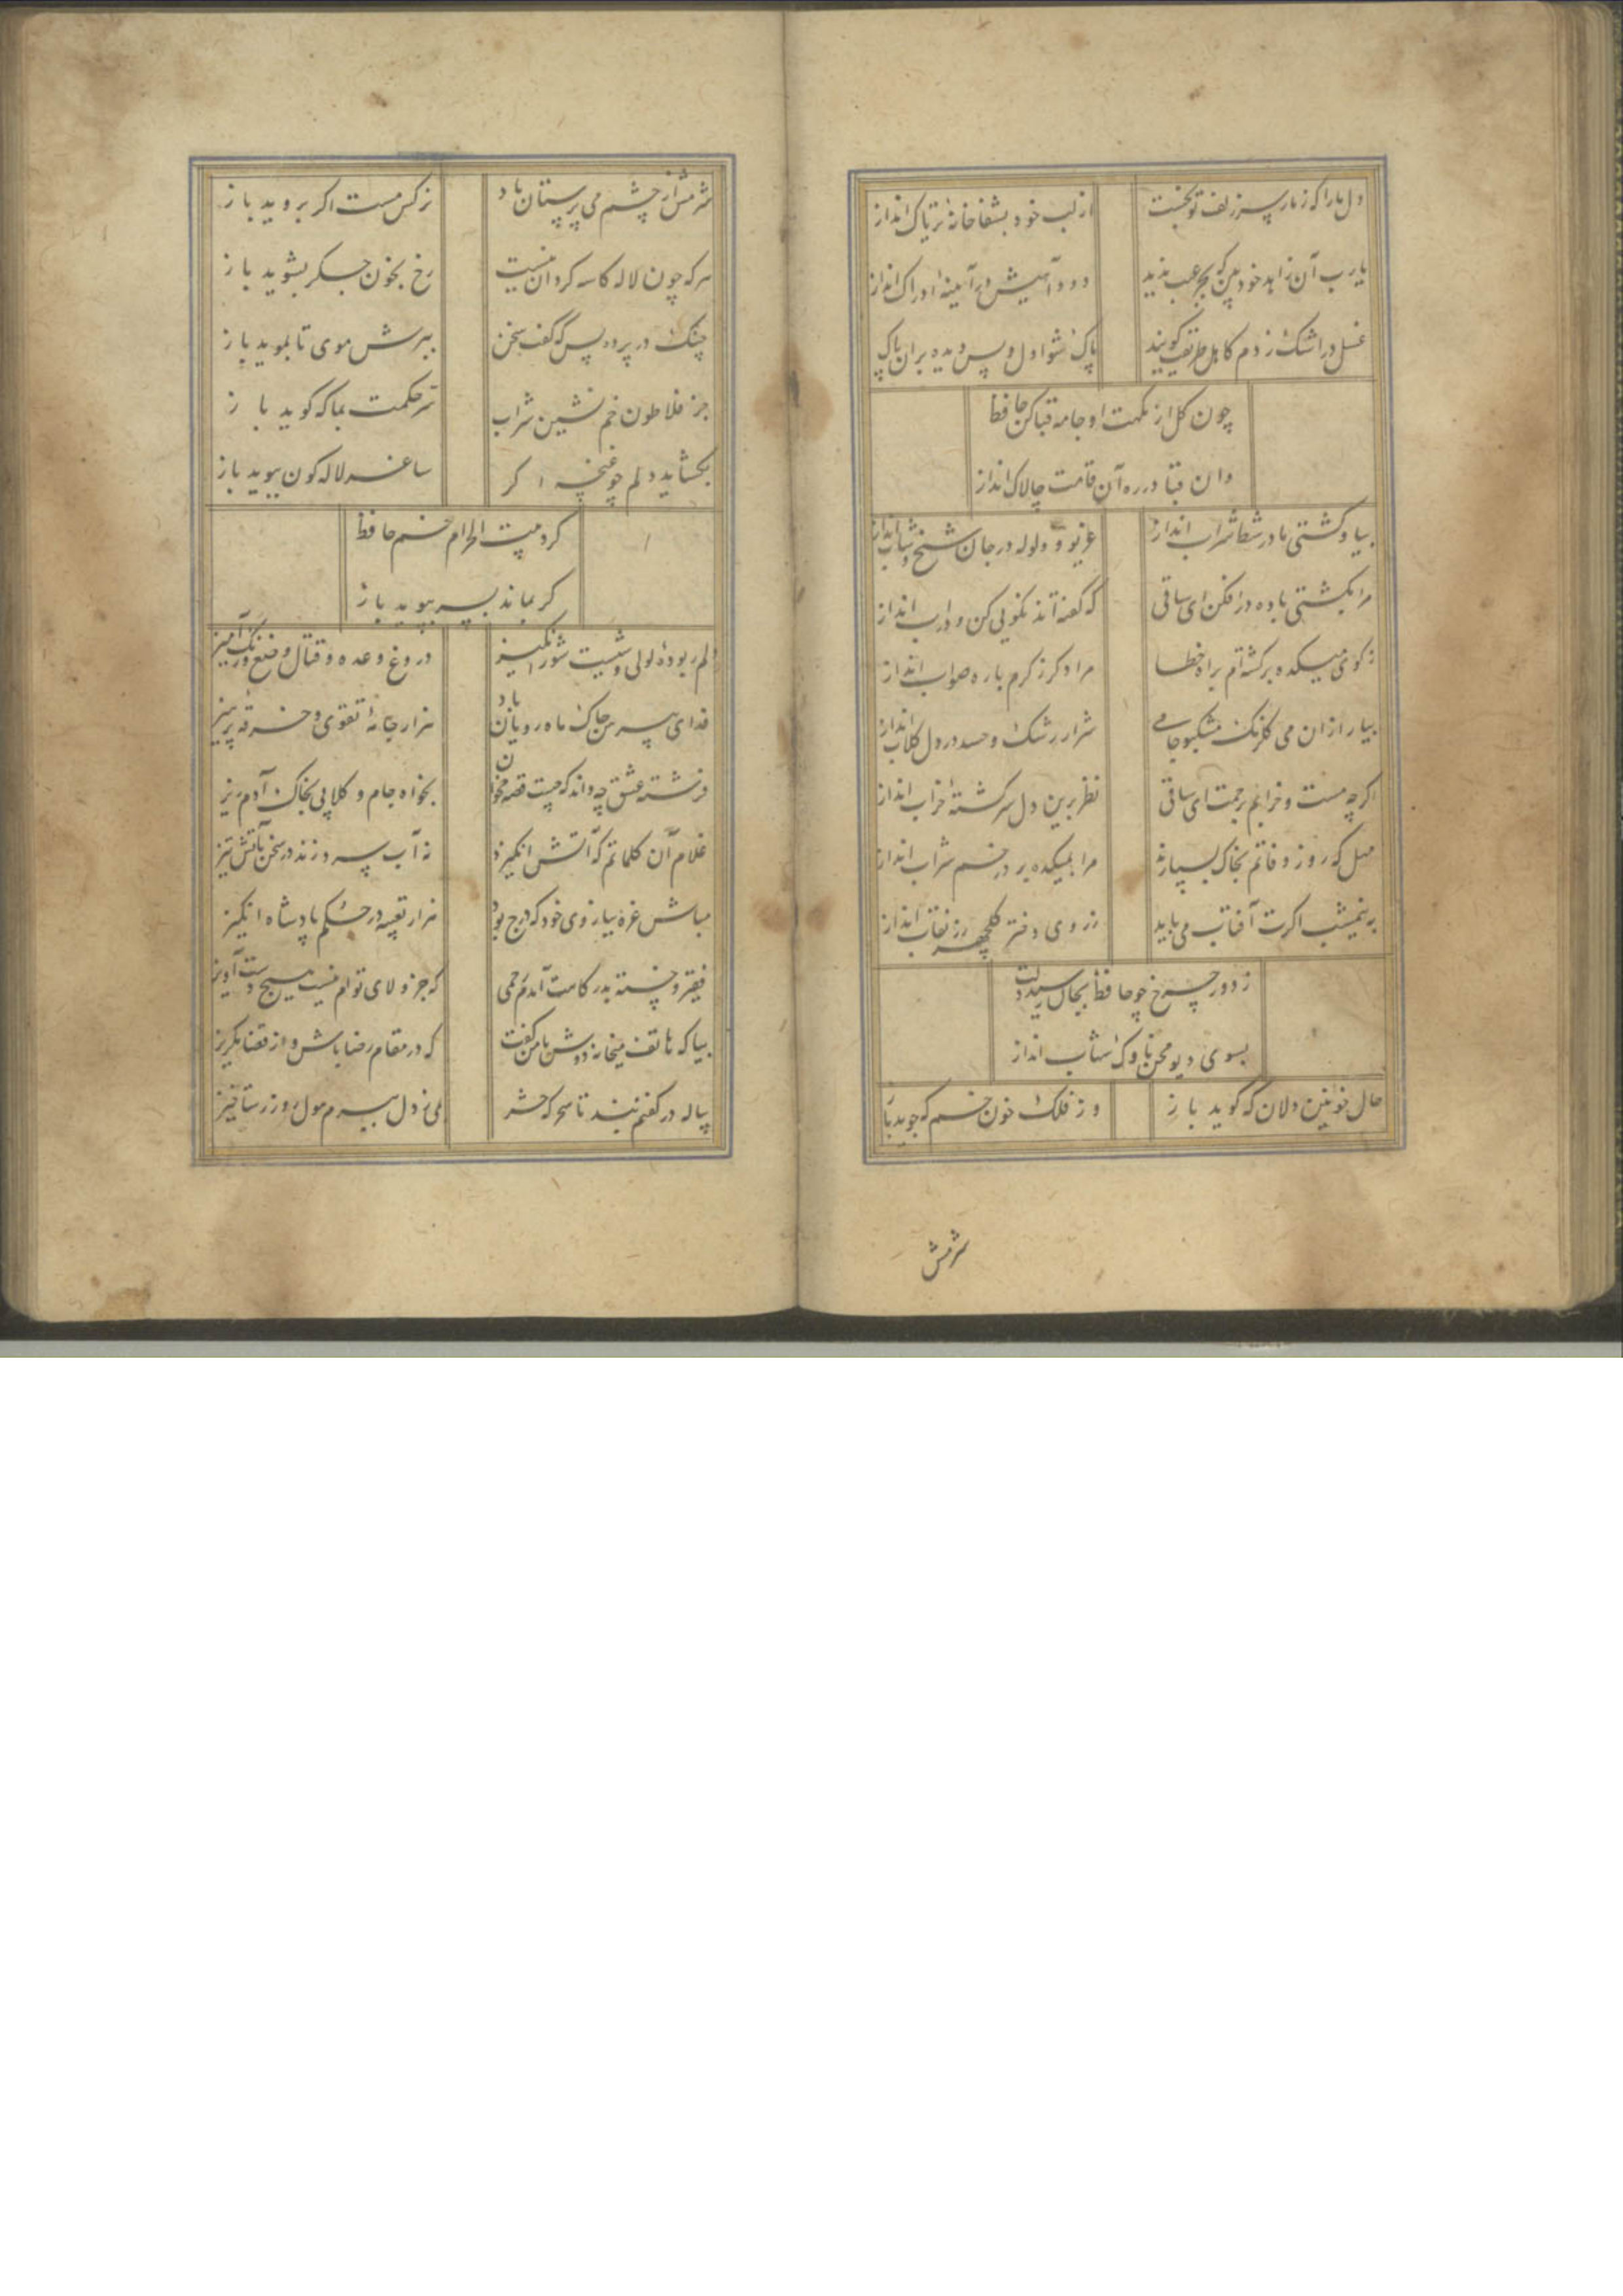 دل ما را که ز مار سر زلف تو بخست از لب خود بشفاخانهٔ تریاک انداز
یا رب آن زاهد خودبین که بجز عیب ندید دود آهیش در آیینه ادراک انداز
غسل در اشک زدم کاهل طریقت کویند پاک شو اول و پس دیده بران پاک
چون کل از نکهت او جامه قبا کن حافظ
وان قبا در ره آن قامت چالاک انداز
بیا و کشتی ما در شط شراب انداز غریو و ولوله در جان شیخ و شاب انداز
مرا بکشتی باده در افکن ای ساقی که کفته‌اند نکویی کن و در آب انداز
ز کوی میکده برکشته‌ام براه خطا مرا دکر ز کرم با ره صواب انداز
بیار ازان می کلرنک مشکبو جامی شرار رشک و حسد در دل کلاب انداز
اکرچه مست و خرابم برحمت ای ساقی نظر برین دل سرکشتهٔ خراب انداز
مهل که روز وفاتم بخاک بسپارند مرا بمیکده بر در خم شراب انداز
به نیمشب اکرت آفتاب می‌باید ز روی دختر کلچهر رز نقاب انداز
ز دور چرخ چو حافظ بجان رسید دلت
بسوی دیو محن ناوک شهاب انداز
حال خونین دلان که کوید باز وز فلک خون خم که جوید باز
شرمش
شرمش از چشم می پرستان باد نرکس مست اکر بروید باز
هرکه چون لاله کاسه کردان نیست رخ بخون جکر بشوید باز
چنک در پرده بس که کفت سخن ببرش موی تا نموید باز
جز فلاطون خم نشین شراب سر حکمت بما که کوید باز
بکشاید دلم چو غنچه اکر ساغر لاله کون ببوید باز
کرد بیت الحرام خم حافظ
کر بماند بسر بپوید باز
دلم ربودهٔ لولی وشیست شورانکیز دروغ وعده و قتال وضع و رنک آمیز
فدای پیرهن چاک ماه رویان باد هزار جامهٔ تقوی و خرقه پرهیز
فرشته عشق چه داند که چیست قصه مخوان بخواه جام و کلابی بخاک آدم ریز
غلام آن کلماتم که آتش انکیزد نه آب سرد زند در سخن بآتش تیز
مباش غره ببازوی خود که درج بود هزار تعبیه در حکم پادشاه انکیز
فقیر و خسته بدرکاهت آمدم رحمی که جز ولای توام نیست هیچ دست آویز
بیا که هاتف میخانه دوش با من کفت که در مقام رضا باش و از قضا مکریز
پیاله در کفنم بند تا سحرکه حشر بمی ز دل ببرم هول روز رستاخیز